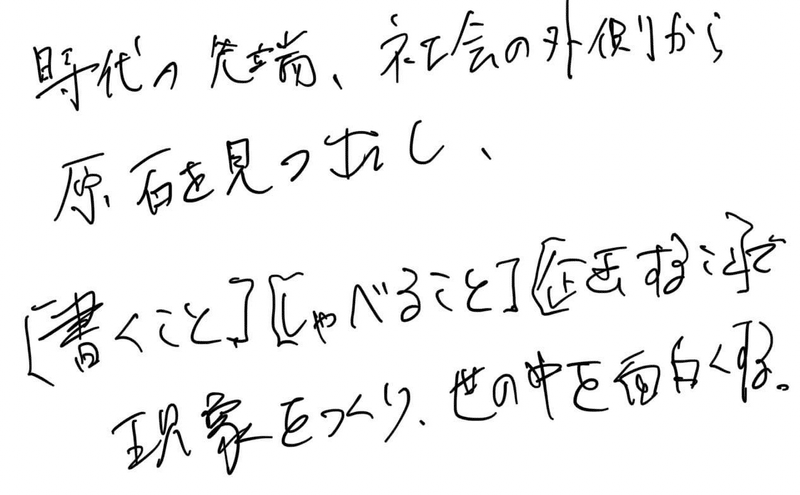 時代の先端、社会の外側から
原石を見つけだし、
[書くこと][しゃべること][企画すること]で
現象をつくり、世の中を面白くする。